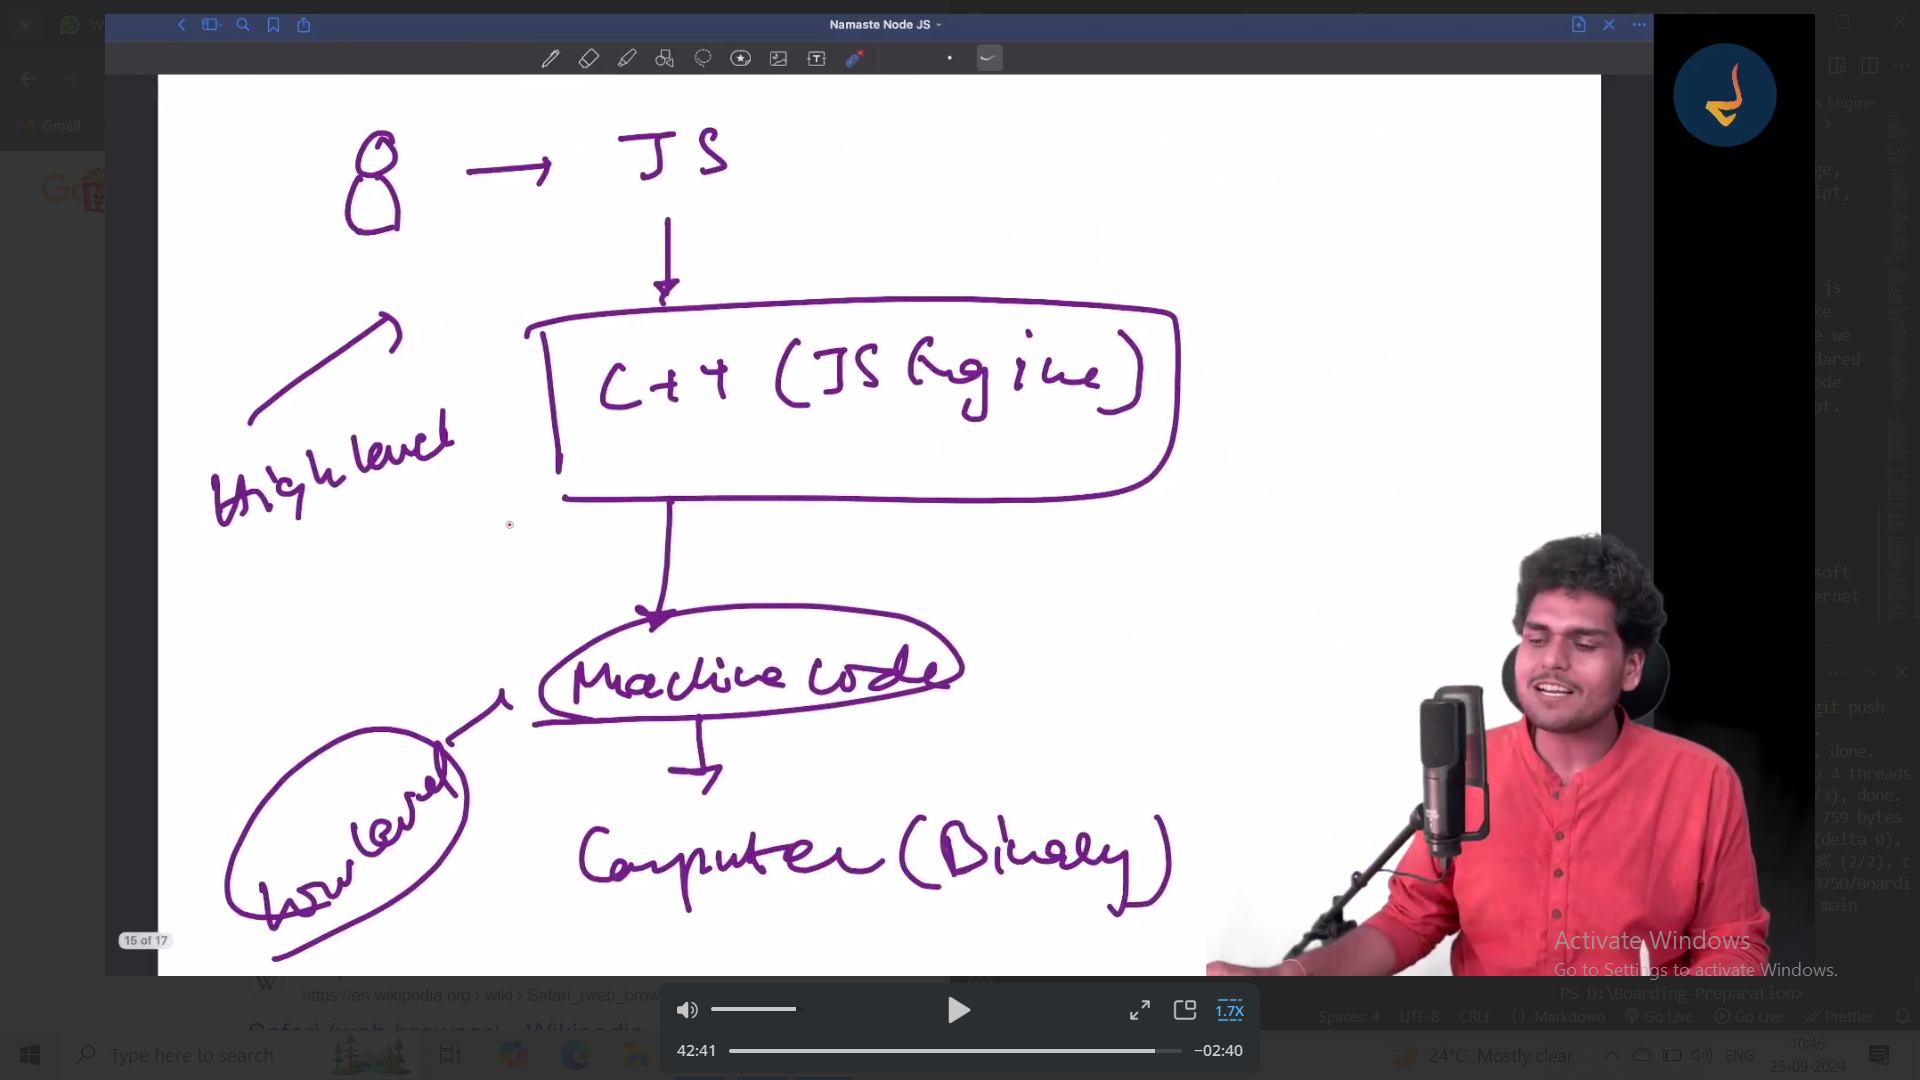 Namaste Node JS
Gmail
JS
C++ (JS Engine)
High level
Machine code
Low level
Computer (Binary)
15 of 17
Engine
?
ge,
ipt,
js
ke
we
dared
ode
pt.
soft
ernet
git push
, done.
4 threads
/3), done.
759 bytes
(delta 0),
0% (2/2), c
0750/Boardi
main
Activate Windows
Go to Settings to activate Windows.
PS D:\Boarding-Preparation>
W
https://en.wikipedia.org › wiki › Safari_(web_brow
Safari (web browser) - Wikipedia
1.7X
Spaces: 4 UTF-8 CRLF {} Markdown Go Live Go Live Prettier
42:41
−02:40
Type here to search
24°C Mostly clear
ENG
10:46
25-09-2024